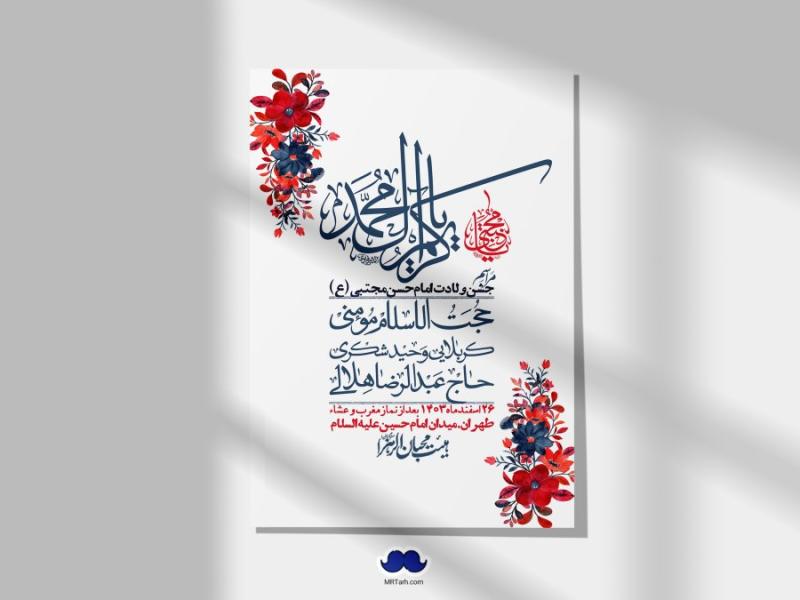 یا کریم آل محمد
مراسم
جشن ولادت امام حسن مجتبی (ع)
حجت الاسلام مؤمنی
کربلایی وحید شکری
حاج عبدالرضا هلالی
۲۶ اسفند ماه ۱۴۰۳ بعد از نماز مغرب و عشاء
طهران.میدان امام حسین علیه السلام
هیئت محبان الزهرا
MRTarh.com